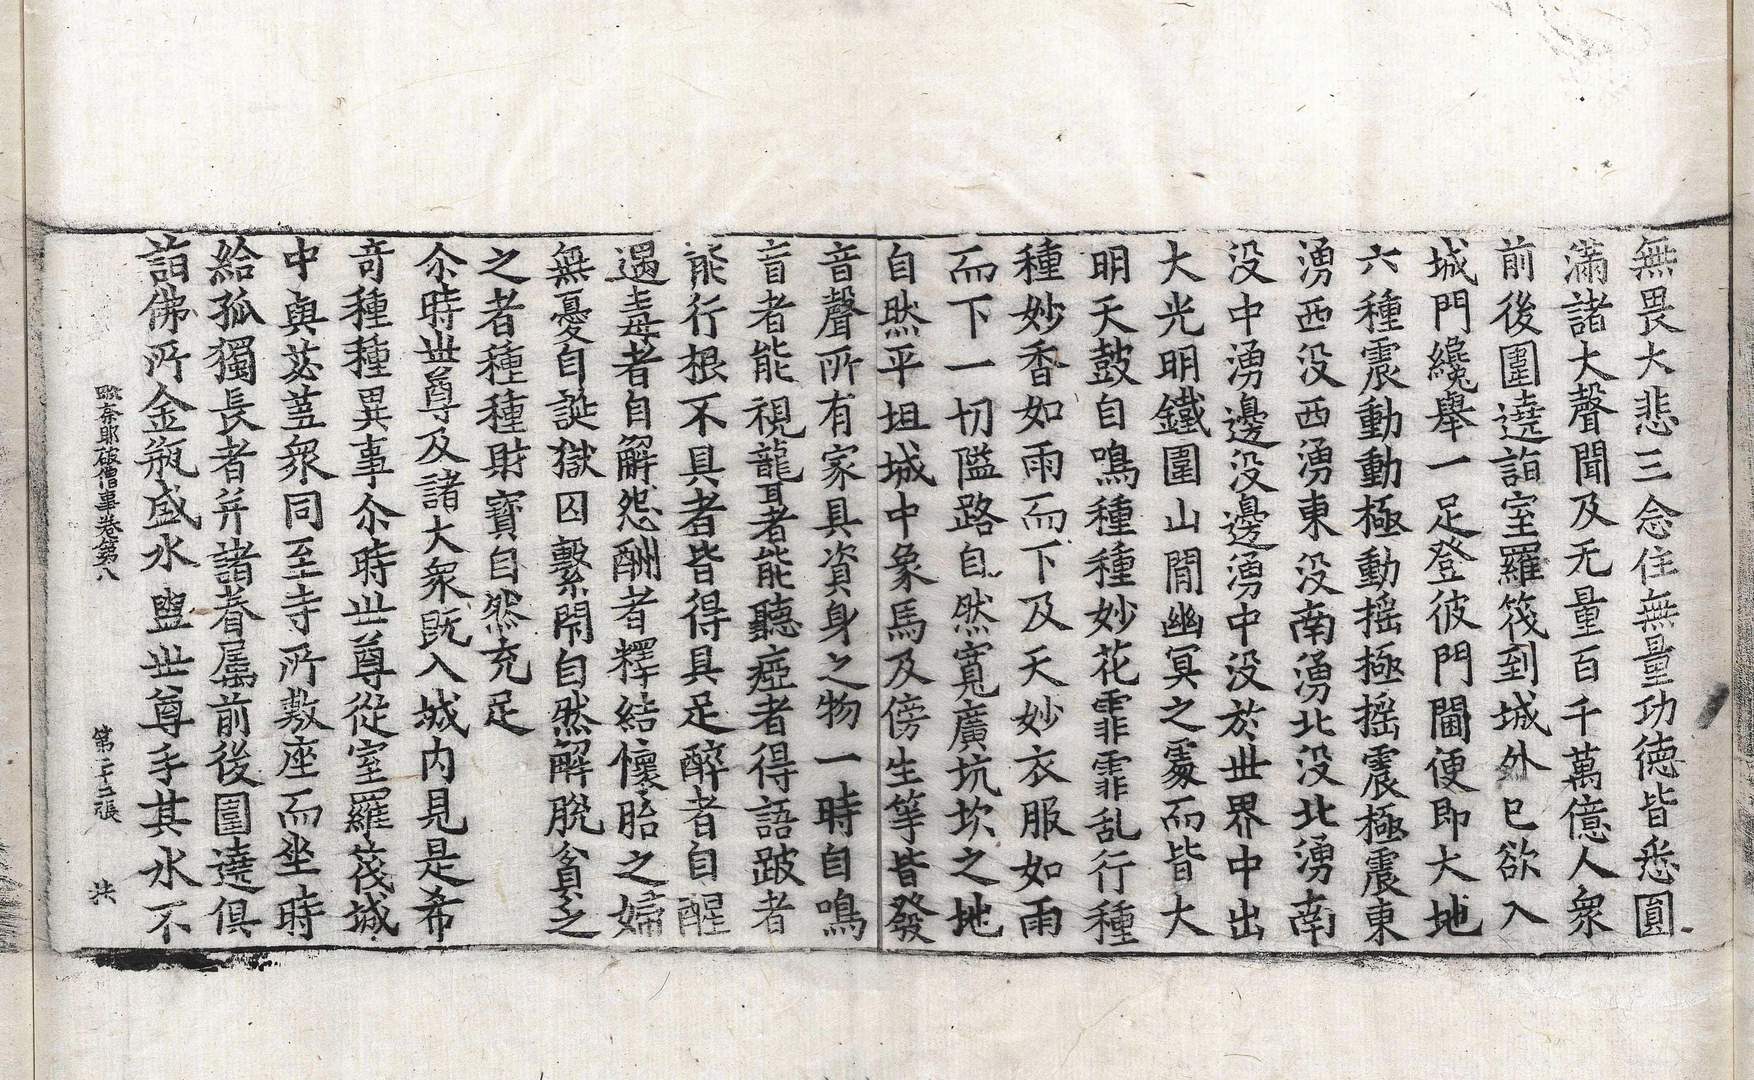 無畏大悲三念住無量功德皆悉圓
滿諸大聲聞及无量百千萬億人衆
前後圍遶詣室羅筏到城外已欲入
城門纔舉一足登彼門閫便即大地
六種震動動極動搖極搖震極震東
湧西没西湧東没南湧北没北湧南
没中湧邊没邊湧中没於世界中出
大光明鐵圍山閒幽冥之處而皆大
明天鼓自鳴種種妙花霏霏乱行種
種妙香如雨而下及天妙衣服如雨
而下一切隘路自然寬廣坑坎之地
自然平坦城中象馬及傍生等皆發
音聲所有家具資身之物一時自鳴
盲者能視聾者能聽瘂者得語跛者
能行根不具者皆得具足醉者自醒
遇毒者自解怨酬者釋結懷胎之婦
無憂自誕獄囚繫閉自然解脫貧乏
之者種種財寶自然充足
尒時世尊及諸大衆既入城内見是希
竒種種異事尒時世尊從室羅筏城
中與苾蒭衆同至寺所敷座而坐時
給孤獨長者并諸眷属前後圍遶俱
詣佛所金瓶盛水盥世尊手其水不
毗奈耶破僧事卷第八 第二十二張 共